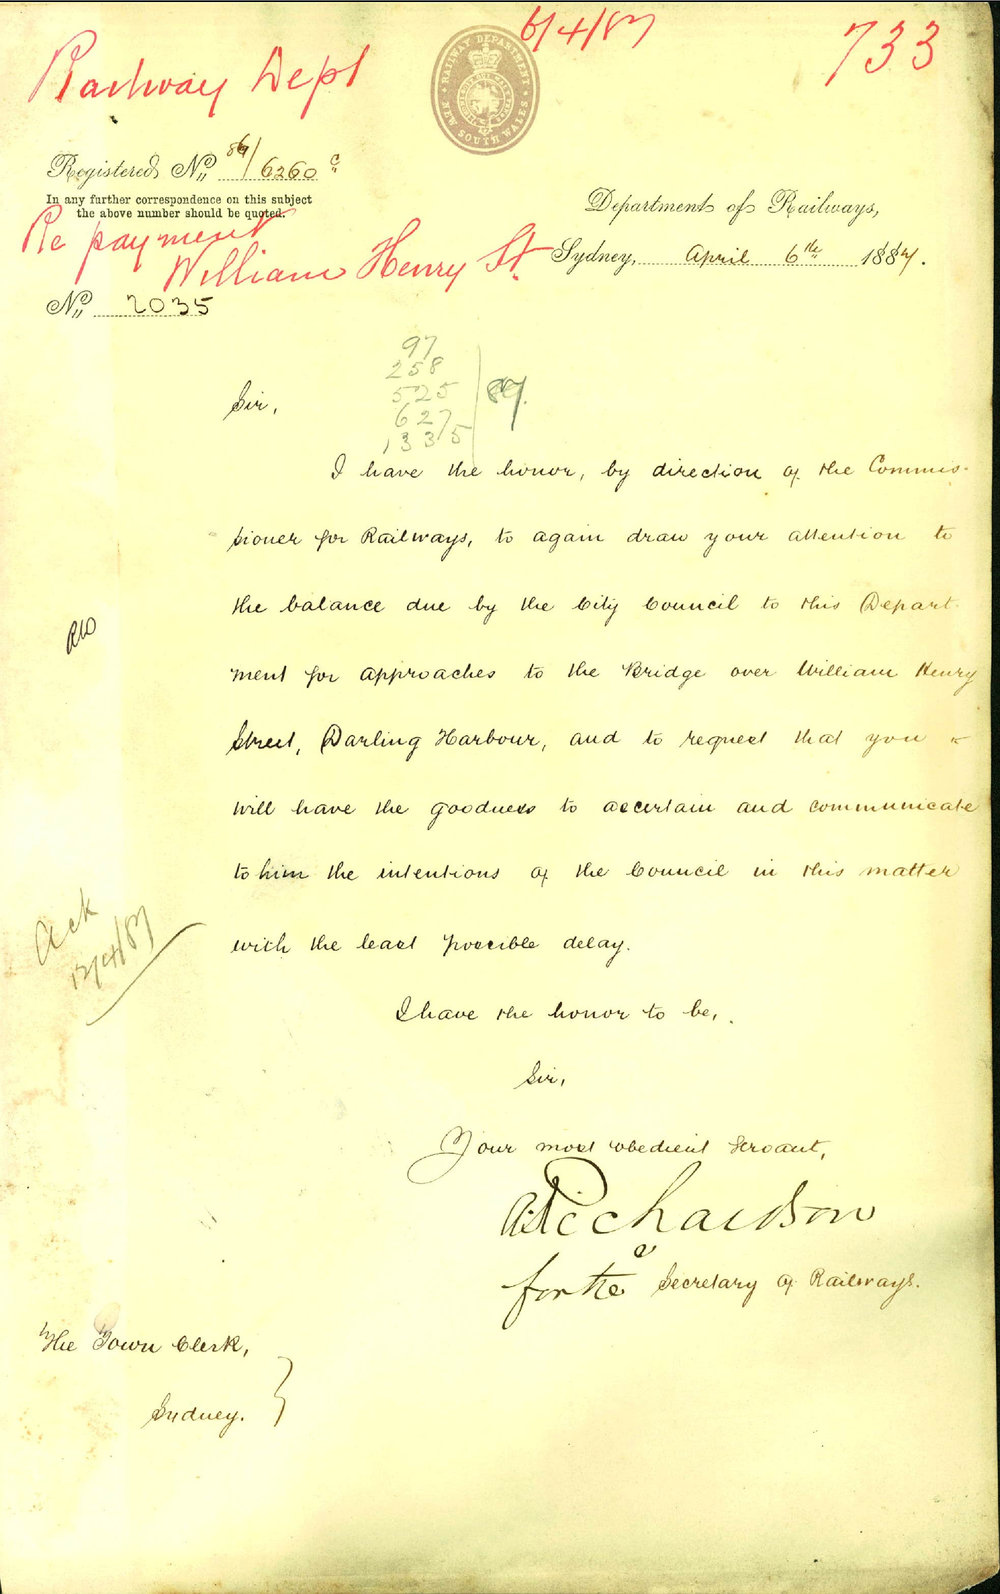 6/4/87
733
Railway Dept
RAILWAY DEPARTMENT
NEW SOUTH WALES
Registered No. 86/6260 c
In any further correspondence on this subject
the above number should be quoted.
Department of Railways,
Re payment
William Henry St
Sydney, April 6th 1887.
No. 2035
97
258
525
627
1335
87.
Sir,
I have the honor, by direction of the Commis-
sioner for Railways, to again draw your attention to
the balance due by the City Council to this Depart-
ment for approaches to the Bridge over William Henry
Street, Darling Harbour, and to request that you
will have the goodness to ascertain and communicate
to him the intentions of the Council in this matter
with the least possible delay.
Ack
12/4/87
I have the honor to be,
Sir,
Your most obedient Servant,
A Richardson
for the Secretary of Railways.
The Town Clerk,
Sydney.